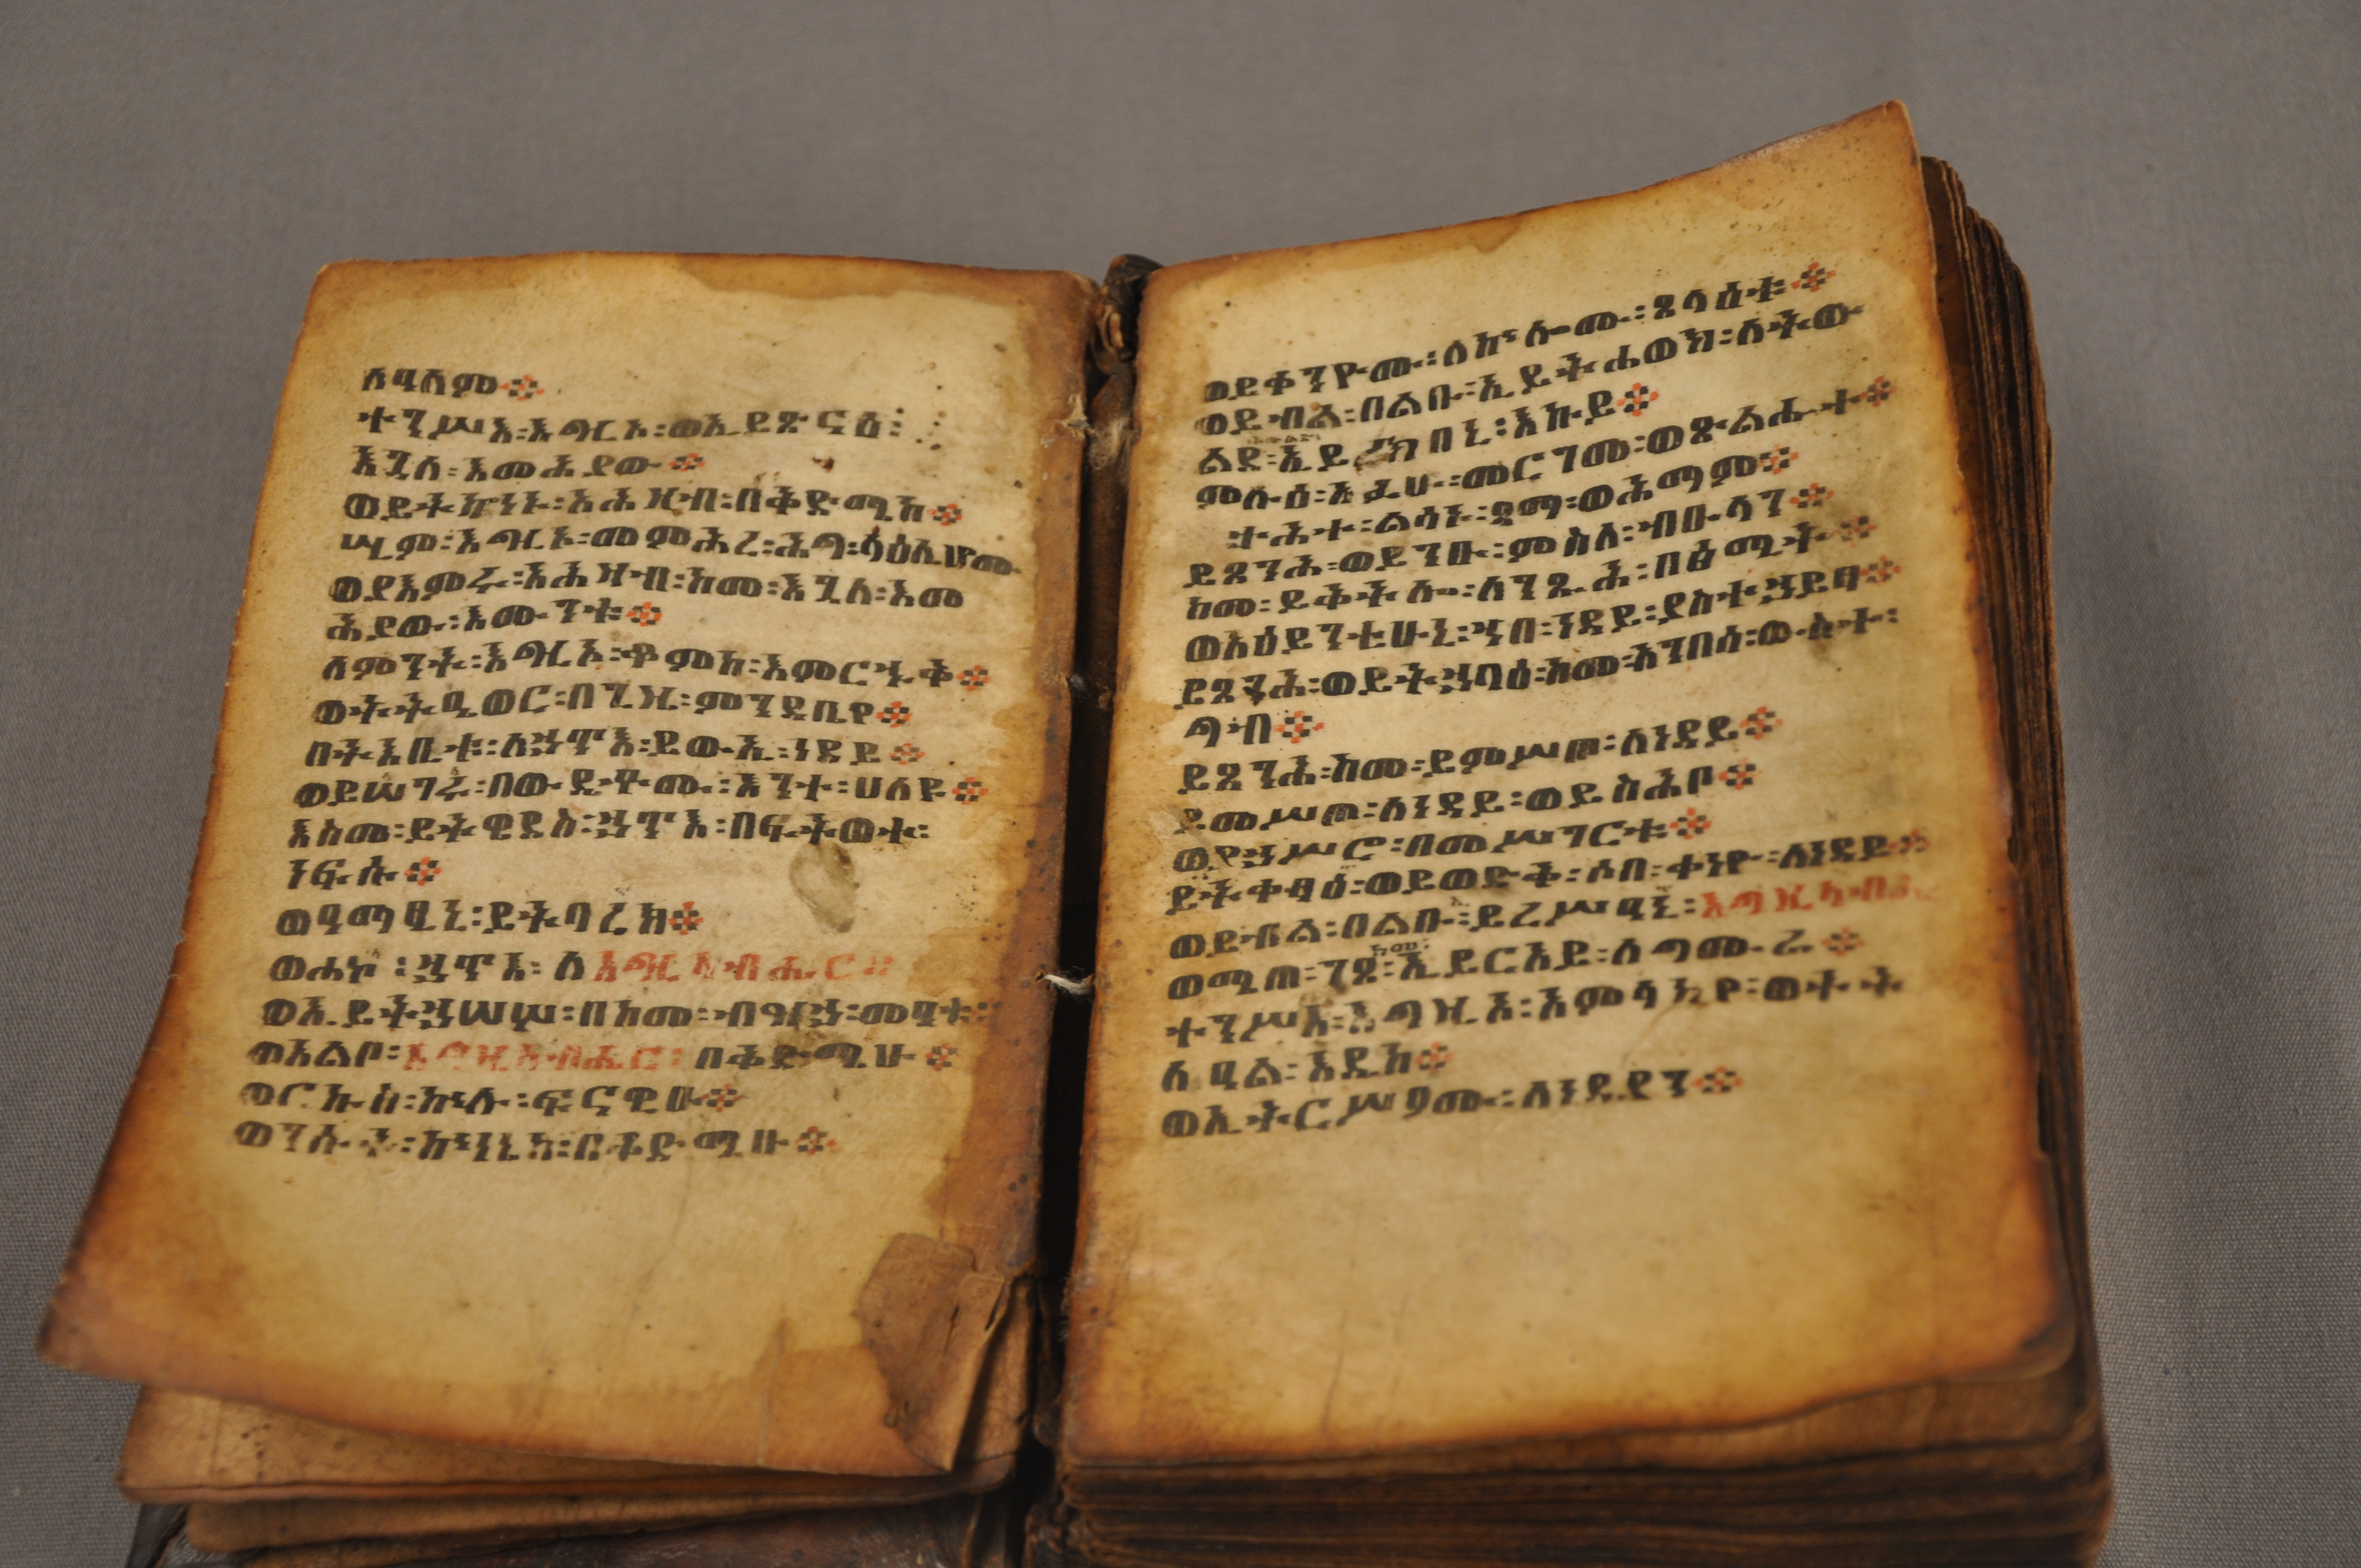 ለዓለም፨
ተንሥእ፡እግዚኦ፡ወኢይጽናዕ፡
እጓለ፡እመሕያው፨
ወይትኰነኑ፡አሕዛብ፡በቅድሜከ፨
ሢም፡እግዚኦ፡መምሕረ፡ሕግ፡ላዕሌሆሙ
ወያእምሩ፡አሕዛብ፡ከመ፡እጓለ፡እመ
ሕያው፡እሙንቱ፨
ለምንት፡እግዚኦ፡ቆምከ፡እምርኁቅ፨
ወትትዔወር፡በጊዜ፡ምንዳቤየ፨
በትእቢቱ፡ለኃጥእ፡ይውኢ፡ነዳይ፨
ወይሠገሩ፡በውዴቶሙ፡እንተ፡ሀለዩ፨
እስመ፡ይትዌደስ፡ኃጥእ፡በፍትወተ፡
ነፍሱ፨
ወዓማፂኒ፡ይትባረክ፨
ወሐኮ፡ኃጥእ፡ለእግዚአብሔር፨
ወኢይትኃሠሦ፡በከመ፡ብዝኃ፡መዓቱ፨
ወአልቦ፡እግዚአብሔር፡በቅድሜሁ፨
ወርኩስ፡ኵሉ፡ፍናዊሁ፨
ወንሱት፡ኵነኔከ፡በቅድሜሁ፨
ወይቀንዮሙ፡ለኵሎሙ፡ጸላዕቱ፨
ወይብል፡በልቡ፡ኢይትሐወክ፡ለትው
ልድ፡ኢይረክበኒ፡እኩይ፨
ምሉዕ፡አፉሁ፡መርገመ፡ወጽልሑተ፨
ታሕተ፡ልሳኑ፡ጻማ፡ወሕማም፨
ይጸንሕ፡ወይንዑ፡ምስለ፡ብዑላን፨
ከመ፡ይቅትሎ፡ለንጹሕ፡በፅሚት፨
ወአዕይንቲሁኒ፡ኃበ፡ነዳይ፡ያስተኃይፃ፨
ይጸንሕ፡ወይትኃባዕ፡ከመ፡አንበሳ፡ውስተ፡
ግብ፨
ይጸንሕ፡ከመ፡ይምሥጦ፡ለነዳይ፨
ይመሥጦ፡ለነዳይ፡ወይስሕቦ፨
ወያኃሥሮ፡በመሥገርቱ፨
ይትቀፃዕ፡ወይወድቅ፡ሶበ፡ቀነዮ፡ለነዳይ፨
ወይብል፡በልቡ፡ይረሥዓኒ፡እግዚአብሔር
ወሜጠ፡ገጾ፡ከመ፡ኢይርአይ፡ለግሙራ፨
ተንሥእ፡እግዚኦ፡አምላኪየ፡ወትት
ለዓል፡እዴከ፨
ወኢትርሥዖሙ፡ለነዳያን፨